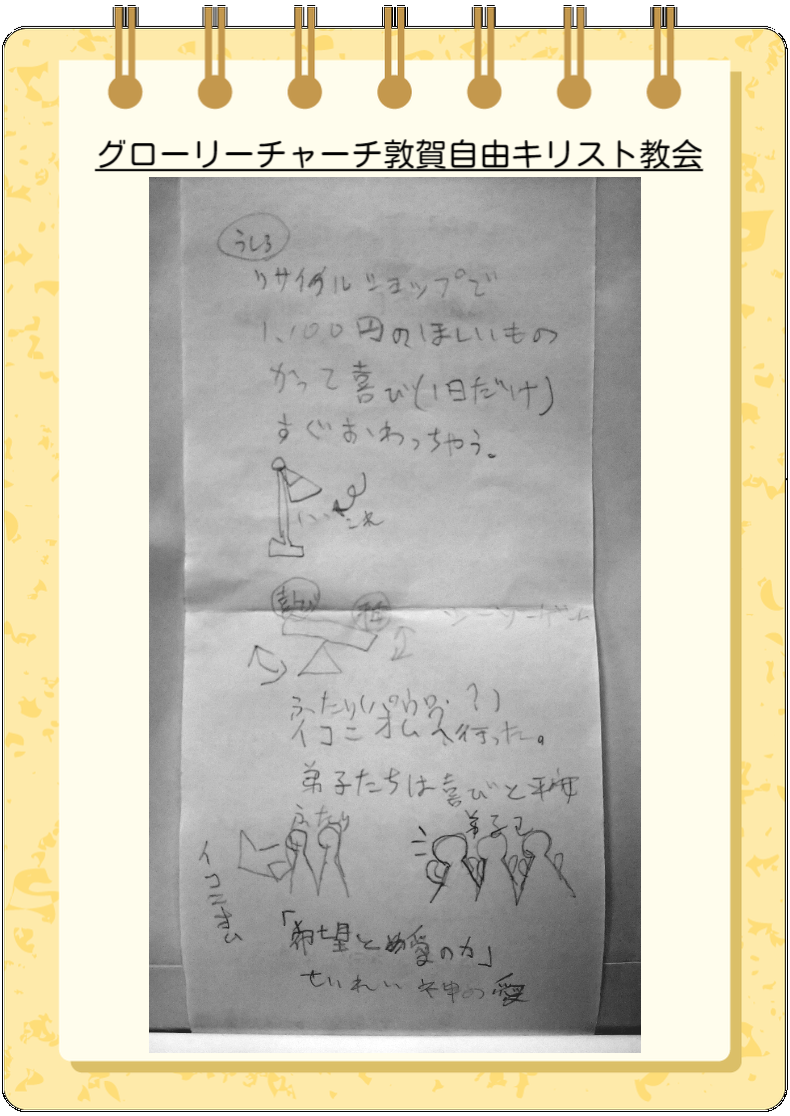 グローリーチャーチ敦賀自由キリスト教会
うしろ
リサイクルショップで
1,100円のほしいもの
かって喜び(1日だけ)
すぐおわっちゃう。
これ
喜び
シーソーゲーム
ふたり(パウロ・?)
イコニオムへ行った。
弟子たちは喜びと平安
ふたり
弟子
イコニオム
「希望と愛の力」
せいれい 神の愛